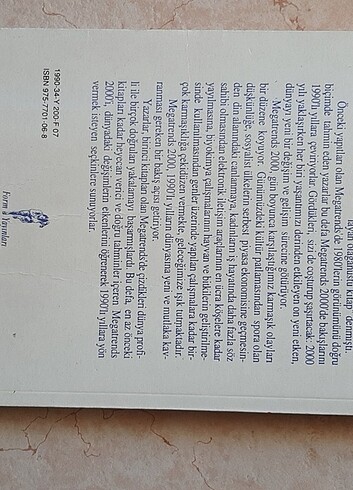 olağanüstü kitap" denmişti.
Önceki yapıtları olan Megatrends'de 1980'lerin görünümünü doğru
biçimde tahmin eden yazarlar bu defa Megatrends 2000'de bakışlarını
1990'lı yıllara çeviriyorlar. Gördükleri, sizi de coşturup şaşırtacak: 2000
yılı yaklaşırken her biri yaşantımızı derinden etkileyen on yeni etken,
dünyayı yeni bir değişim ve gelişim sürecine götürüyor.
Megatrends 2000, gün boyunca karşılaştığımız karmaşık olayları
bir düzene koyuyor. Günümüzdeki kültür patlamasından spora olan
düşkünlüğe, sosyalist ülkelerin serbest piyasa ekonomisine geçmesin-
den din alanındaki canlanmaya, kadınların iş hayatında daha fazla söz
sahibi olmasından elektronik iletişim araçlarının en ücra köşelere kadar
yayılmasına, biyokimya çalışmalarının hayvan ve bitkilerin geliştirilme-
sinde kullanılmasından genler üzerinde yapılan çalışmalara kadar bir-
çok karmaşıklığa çekidüzen vermekte, geleceğimize ışık tutmaktadır.
Megatrends 2000, 1990'lı yılların dünyasına yeni ve mutlaka kav-
ranması gereken bir bakış açısı getiriyor.
Yazarlar, birinci kitapları olan Megatrends'de çizdikleri dünya profi-
li ile birçok doğruları yakalamayı başarmışlardı. Bu defa, en az önceki
kitapları kadar heyecan verici ve doğru tahminler içeren Megatrends
2000'i, dünyadaki değişimlerin etkenlerini öğrenerek 1990'lı yıllara yön
vermek isteyen seçkinlere sunuyorlar.
Form Yayınları
1990-34-Y 200-F 07
ISBN 975-7701-06-8